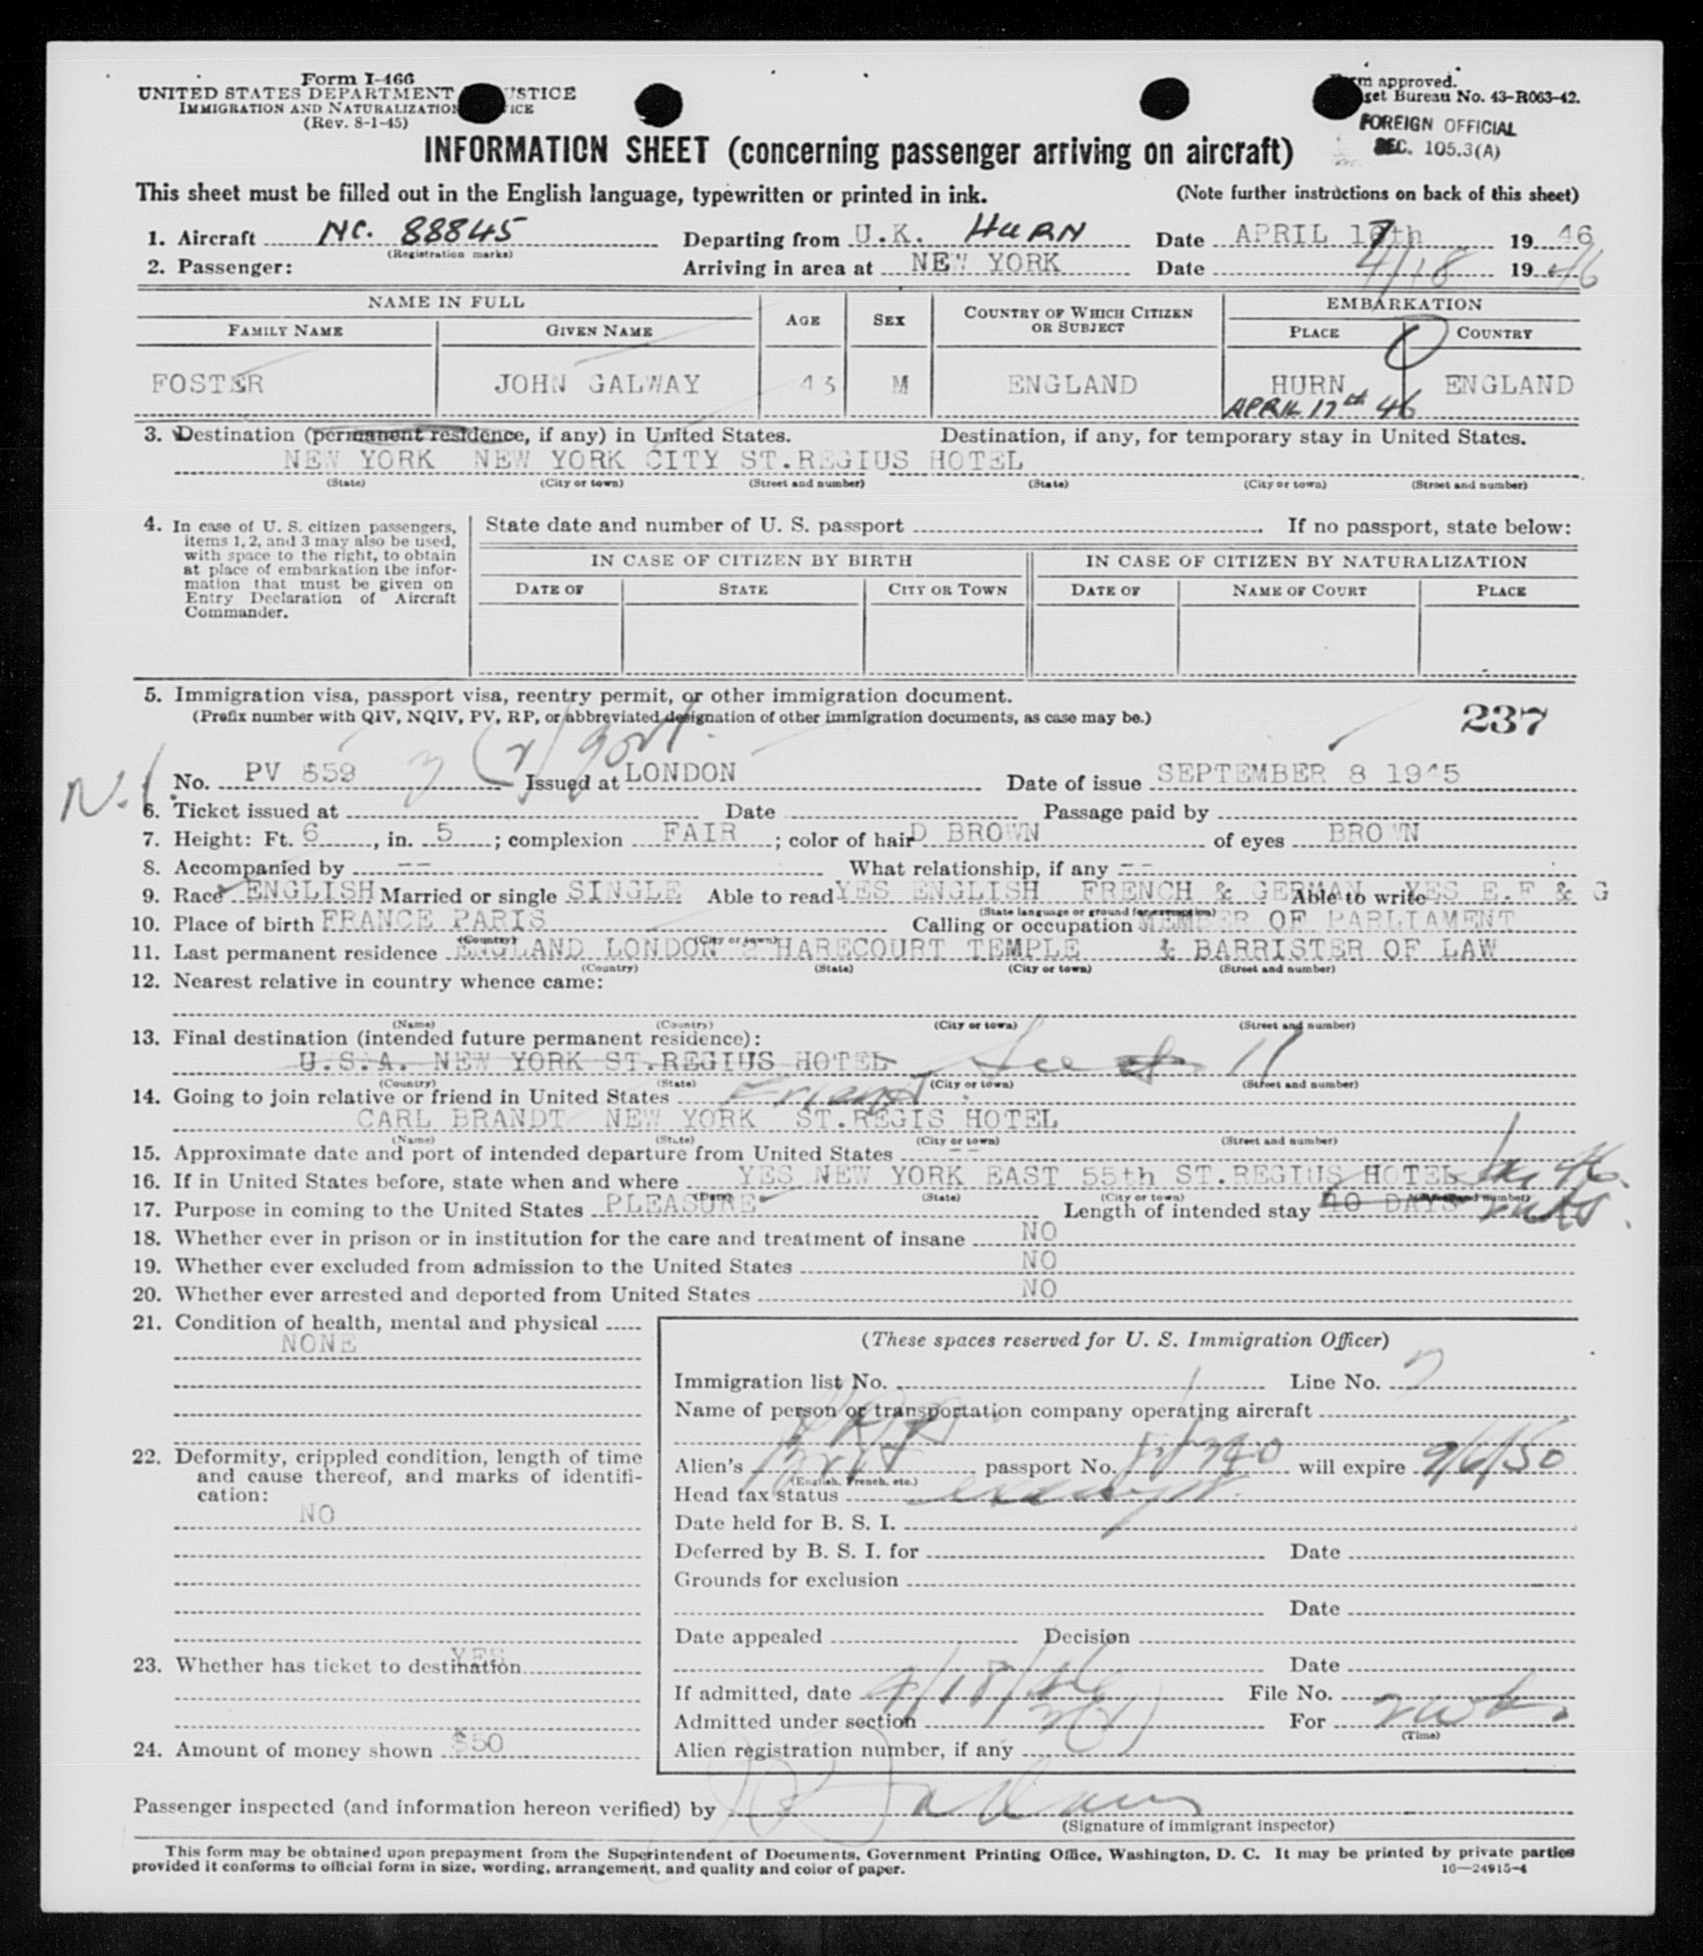 Form I-466
UNITED STATES DEPARTMENT STICE
IMMIGRATION AND NATURALIZATION ICE
(Rev. 8-1-45)
approved.
get Bureau No. 43-R063-42.
FOREIGN OFFICIAL
SEC. 105.3(A)
INFORMATION SHEET (concerning passenger arriving on aircraft)
This sheet must be filled out in the English language, typewritten or printed in ink. (Note further instructions on back of this sheet)
1. Aircraft NC. 88845 Departing from U.K. HURN Date APRIL 17th 1946
(Registration marks)
2. Passenger: Arriving in area at NEW YORK Date 4/18 1946
NAME IN FULL AGE SEX COUNTRY OF WHICH CITIZEN OR SUBJECT EMBARKATION
FAMILY NAME GIVEN NAME PLACE COUNTRY
FOSTER JOHN GALWAY 43 M ENGLAND HURN ENGLAND
APRIL 17th 46
3. Destination (permanent residence, if any) in United States. Destination, if any, for temporary stay in United States.
NEW YORK NEW YORK CITY ST.REGIUS HOTEL
(State) (City or town) (Street and number) (State) (City or town) (Street and number)
4. In case of U. S. citizen passengers, items 1, 2, and 3 may also be used, with space to the right, to obtain at place of embarkation the information that must be given on Entry Declaration of Aircraft Commander.
State date and number of U. S. passport . If no passport, state below:
IN CASE OF CITIZEN BY BIRTH IN CASE OF CITIZEN BY NATURALIZATION
DATE OF STATE CITY OR TOWN DATE OF NAME OF COURT PLACE
5. Immigration visa, passport visa, reentry permit, or other immigration document.
(Prefix number with QIV, NQIV, PV, RP, or abbreviated designation of other immigration documents, as case may be.)
237
No. PV 859 Issued at LONDON Date of issue SEPTEMBER 8 1945
6. Ticket issued at Date Passage paid by
7. Height: Ft. 6, in. 5; complexion FAIR; color of hair D BROWN of eyes BROWN
8. Accompanied by -- What relationship, if any --
9. Race ENGLISH Married or single SINGLE Able to read YES ENGLISH FRENCH & GERMAN Able to write YES E.F & G
(State language or ground for exemption)
10. Place of birth FRANCE PARIS Calling or occupation MEMBER OF PARLIAMENT
(Country) (City or town)
11. Last permanent residence ENGLAND LONDON 2 HARECOURT TEMPLE & BARRISTER OF LAW
(Country) (State) (City or town) (Street and number)
12. Nearest relative in country whence came:
(Name) (Country) (City or town) (Street and number)
13. Final destination (intended future permanent residence):
U.S.A. NEW YORK ST.REGIUS HOTEL See 17
(Country) (State) (City or town) (Street and number)
14. Going to join relative or friend in United States Friend
CARL BRANDT NEW YORK ST.REGIS HOTEL
(Name) (State) (City or town) (Street and number)
15. Approximate date and port of intended departure from United States --
16. If in United States before, state when and where YES NEW YORK EAST 55th ST.REGIUS HOTEL Jan 46.
(Date) (State) (City or town) (Street and number)
17. Purpose in coming to the United States PLEASURE Length of intended stay 40 DAYS
18. Whether ever in prison or in institution for the care and treatment of insane NO
19. Whether ever excluded from admission to the United States NO
20. Whether ever arrested and deported from United States NO
21. Condition of health, mental and physical
NONE
22. Deformity, crippled condition, length of time and cause thereof, and marks of identification:
NO
23. Whether has ticket to destination YES
24. Amount of money shown $50
(These spaces reserved for U. S. Immigration Officer)
Immigration list No. 1 Line No. 7
Name of person or transportation company operating aircraft
Alien's passport No. will expire 9/6/50
(English, French, etc.)
Head tax status exempt
Date held for B. S. I.
Deferred by B. S. I. for Date
Grounds for exclusion
Date
Date appealed Decision
Date
If admitted, date 4/18/46 File No.
Admitted under section 3(1) For
(Time)
Alien registration number, if any
Passenger inspected (and information hereon verified) by
(Signature of immigrant inspector)
This form may be obtained upon prepayment from the Superintendent of Documents, Government Printing Office, Washington, D. C. It may be printed by private parties
provided it conforms to official form in size, wording, arrangement, and quality and color of paper. 16—24915-4